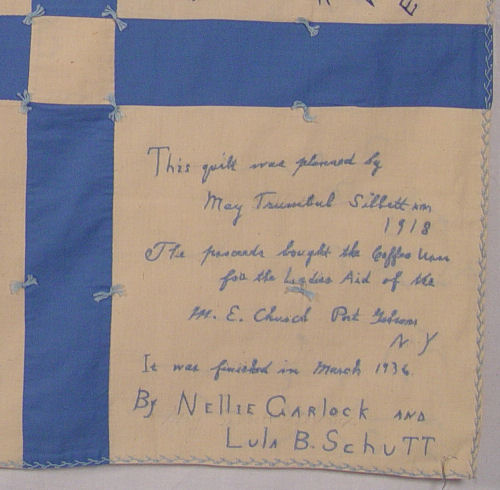 This quilt was planned by
May Trumbul Silbett in
1918
The proceeds bought the Coffee Urn
for the Ladies Aid of the
M. E. Church Port Gibson
N Y
It was finished in March 1936
By Nellie Garlock and
Lula B. Schutt